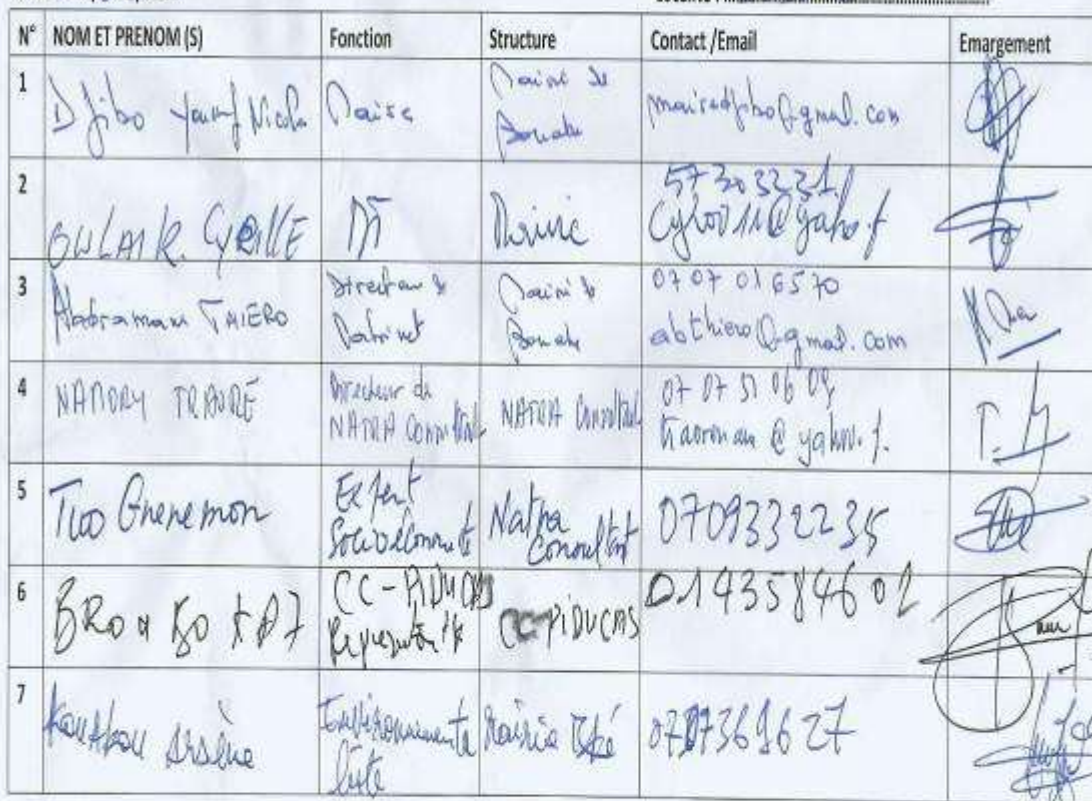 N° NOM ET PRENOM (S) Fonction Structure Contact /Email Emargement
1 Djibo Youssouf Nicolas Maire Mairie de Bouaké mairedjibo@gmail.com
2 OULAI K. CYRILLE DT Mairie 57303231/
3 Abdramane THIERO Directeur de Cabinet Mairie de Bouaké 07 07 01 65 70
abthiero@gmail.com
4 NAMORY TRAORÉ Directeur de NATRA Consultant NATRA Consultant 07 07 51 06 09
5 Tuo Gnenemon Expert Socioéconomiste Natra Consultant 0709332235
6 CC-PIDUCAS CC-PIDUCAS
7 Kouakou Arsène Environnementaliste Mairie Bké